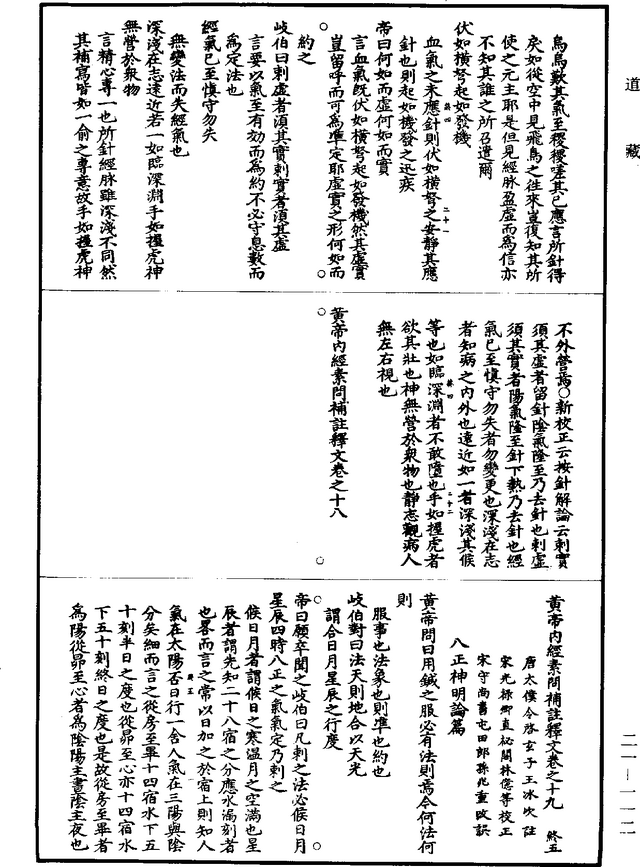 道藏
烏烏歎其氣至稷稷嗟其已應言所針得
失如從空中見飛鳥之往來豈復知其所
使之元主耶是但見經脉盈虛而為信亦
不知其誰之所召遣爾
伏如橫弩起如發機
血氣之未應針則伏如橫弩之安靜其應
針也則起如機發之迅疾
帝曰何如而虛何如而實
言血氣既伏如橫弩起如發機然其虛實
豈留呼而可為準定耶虛實之形何如而
約之
岐伯曰刺虛者須其實刺實者須其虛
言要以氣至有効而為約不必守息數而
為定法也
經氣已至慎守勿失
無變法而失經氣也
深淺在志遠近若一如臨深淵手如握虎神
無營於眾物
言精心專一也所針經脉雖深淺不同然
其補寫皆如一俞之專意故手如握虎神
不外營焉○新校正云按針解論云刺實
須其虛者留針陰氣隆至乃去針也刺虛
須其實者陽氣隆至針下熱乃去針也經
氣已至慎守勿失者勿變更也深淺在志
者知病之內外也遠近如一者深淺其候
等也如臨深淵者不敢墮也手如握虎者
欲其壯也神無營於眾物也靜志觀病人
無左右視也
黃帝內經素問補註釋文卷之十八
黃帝內經素問補註釋文卷之十九 終五
唐太僕令啓玄子王冰次註
宋光祿卿直祕閣林億等校正
宋守尚書屯田郎孫兆重改誤
八正神明論篇
黃帝問曰用鍼之服必有法則焉今何法何
則
服事也法象也則準也約也
岐伯對曰法天則地合以天光
謂合日月星辰之行度
帝曰願卒聞之岐伯曰凡刺之法必候日月
星辰四時八正之氣氣定乃刺之
候日月者謂候日之寒溫月之空滿也星
辰者謂先知二十八宿之分應水漏刻者
也畧而言之常以日加之於宿上則知人
氣在太陽否日行一舍人氣在三陽與陰
分矣細而言之從房至畢十四宿水下五
十刻半日之度也從昴至心亦十四宿水
下五十刻終日之度也是故從房至畢者
為陽從昴至心者為陰陽主晝陰主夜也
二一——一一二